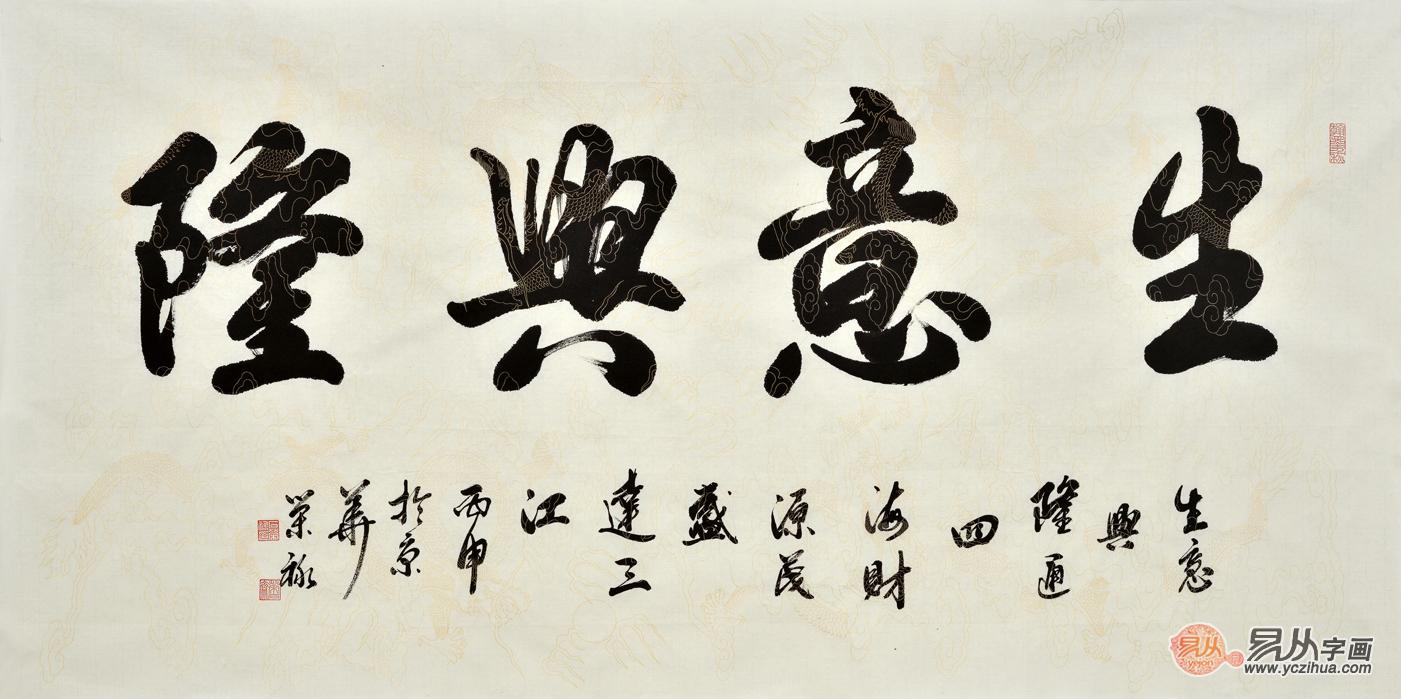 生意興隆
生意
興
隆通
四
海財
源茂
盛
達三
江
丙申
於京
華
榮祿
易从
易从字画
www.yczihua.com